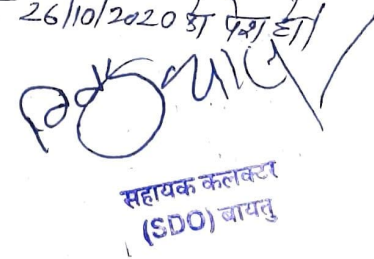 26/10/2020 को पेश हो।
सहायक कलक्टर
(SDO) बायतु